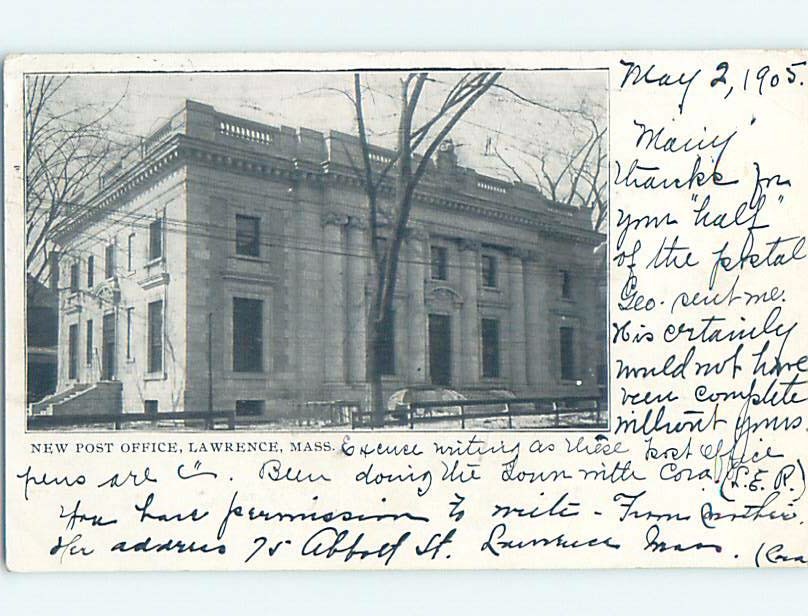 May 2, 1905.
"Many"
thanks for
your "half"
of the postal
Geo. sent me.
His certainly
would not have
been complete
without yours.
NEW POST OFFICE, LAWRENCE, MASS.
Excuse writing as these Post Office
pens are . Been doing the town with Cora (L. E. R.)
You have permission to write - From Mother
Her address 75 Abbott St. Lawrence Mass. (Cora